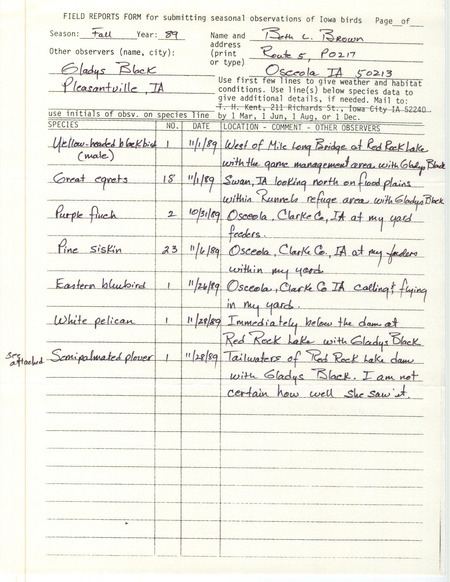 FIELD REPORTS FORM for submitting seasonal observations of Iowa birds Page_of_
Season: Fall Year: 89 Name and address (print or type) Beth L. Brown
Other observers (name, city): Route 5, Box 217
Gladys Black Osceola IA 50213
Pleasantville, IA
Use first few lines to give weather and habitat
conditions. Use line(s) below species data to
give additional details, if needed. Mail to:
T. H. Kent, 211 Richards St., Iowa City IA 52240
use initials of obsv. on species line by 1 Mar, 1 Jun, 1 Aug, or 1 Dec.
SPECIES NO. DATE LOCATION - COMMENT - OTHER OBSERVERS
Yellow-headed blackbird 1 11/1/89 West of Mile Long Bridge at Red Rock Lake
(male) with the game management area with Gladys Black
Great egrets 15 11/1/89 Swan, IA looking north on flood plains
within Runnels refuge area with Gladys Black
Purple finch 2 10/31/89 Osceola, Clarke Co, IA at my yard
feeders.
Pine siskin 23 11/6/89 Osceola, Clarke Co., IA at my feeders
within my yard
Eastern bluebird 1 11/26/89 Osceola, Clarke Co IA calling & flying
in my yard.
White pelican 1 11/28/89 Immediately below the dam at
Red Rock Lake with Gladys Black
see attached Semipalmated plover 1 11/28/89 Tailwaters of Red Rock Lake dam
with Gladys Black. I am not
certain how well she saw it.